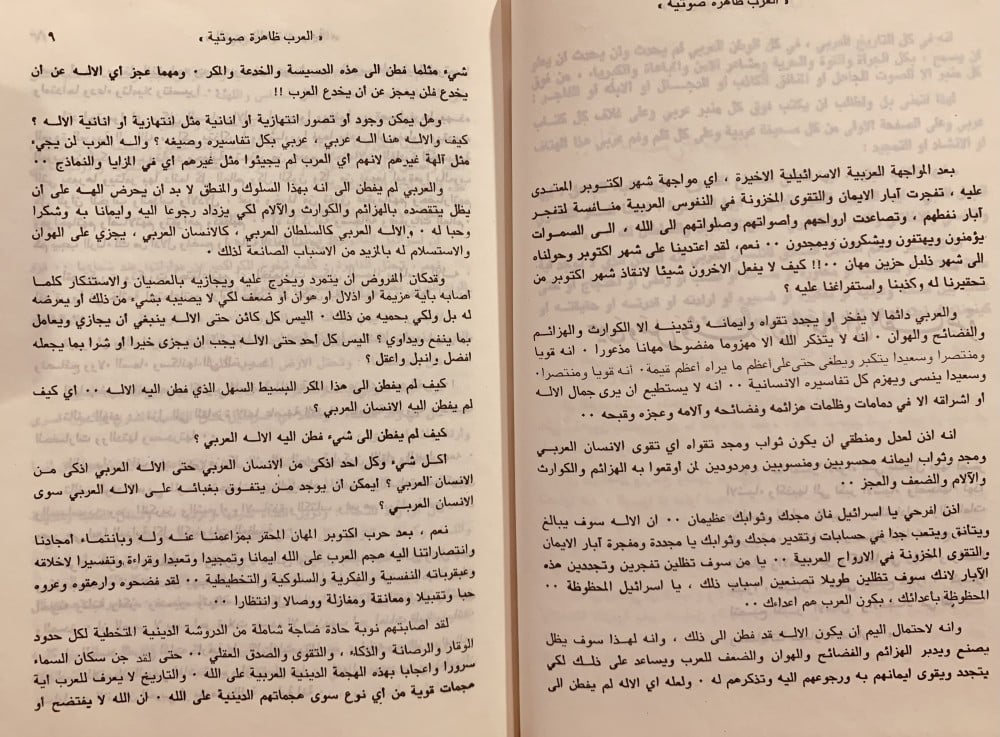 « العرب ظاهرة صوتية »
بعد المواجهة العربية الاسرائيلية الاخيرة ، اي مواجهة شهر اكتوبر المعتدى
عليه ، تفجرت آبار الايمان والتقوى المخزونة في النفوس العربية منافسة لتفجر
آبار نفطهم ، وتصاعدت ارواحهم واصواتهم وصلواتهم الى الله ، الـى السموات
يؤمنون ويهتفون ويشكرون ويمجدون ٠٠ نعم، لقد اعتدينا على شهر اكتوبر وحولناه
الى شهر ذليل حزين مهان ٠٠!! كيف لا يفعل الاخرون شيئا لانقاذ شهر اكتوبر من
تحقيرنا له وكذبنا واستفراغنا عليه ؟
والعربي دائما لا يفخر او يجدد تقواه وايمانـه وتدينـه الا الكوارث والهزائـم
والفضائح والهوان ٠ انه لا يتذكر الله الا مهزوما مفضوحا مهانا مذعورا ٠ انه قويا
ومنتصرا وسعيدا يتكبر ويطغى حتى على اعظم ما يراه اعظم قيمة٠ انه قويا ومنتصرا٠
وسعيدا ينسى ويهزم كل تفاسيره الانسانية ٠٠ انه لا يستطيع ان يرى جمال الالـه
او اشراقه الا في دمامات وظلمات هزائمه وفضائحه وآلامه وعجزه وقبحه ٠٠
انه اذن لعدل ومنطقي ان يكون ثواب ومجد تقواه اي تقوى الانسان العربـي
ومجد وثواب ايمانه محسوبين ومنسوبين ومردودين لمن اوقعوا به الهزائم والكوارث
والآلام والضعف والعجز ٠٠
اذن افرحي يا اسرائيل فان مجدك وثوابك عظيمان ٠٠ ان الالـه سوف يبالغ
ويتانق ويتعب جدا في حسابات وتقدير مجدك وثوابك يا مجددة ومفجرة آبار الايمان
والتقوى المخزونة في الارواح العربية ٠٠ يا من سوف تظلين تفجرين وتجددين هذه
الآبار لانك سوف تظلين طويلا تصنعين اسباب ذلك ، يا اسرائيل المحظوظة ٠٠
المحظوظة باعدائك ، بكون العرب هم اعداءك ٠٠
وانه لاحتمال اليم ان يكون الالـه قد فطن الى ذلك ، وانه لهـذا سوف يظل
يصنع ويدبر الهزائم والفضائح والهوان والضعف للعرب ويساعد على ذلـك لكي
يتجدد ويقوى ايمانهم به ورجوعهم اليه وتذكرهم له ٠ ولعله اي الاله لم يفطن الى
« العرب ظاهرة صوتية » ٩
شيء مثلما فطن الى هذه الدسيسة والخدعة والمكر ٠ ومهما عجز اي الالـه عن ان
يخدع فلن يعجز عن ان يخدع العرب !!
وهل يمكن وجود او تصور انتهازية او انانية مثل انتهازية او انانية الالـه ؟
كيف والالـه هنا الـه عربي ، عربي بكل تفاسيره وصيغه ؟ والـه العرب لن يجيء
مثل آلهة غيرهم لانهم اي العرب لم يجيئوا مثل غيرهم اي في المزايا والنماذج ٠٠
والعربي لم يفطن الى انه بهذا السلوك والمنطق لا بد ان يحرض الهـه على ان
يظل يتقصده بالهزائم والكوارث والآلام لكي يزداد رجوعا اليه وايمانا به وشكرا
وحبا له ٠ والالـه العربي كالسلطان العربي ، كالانسان العربي ، يجزي على الهوان
والاستسلام له بالمزيد من الاسباب الصانعة لذلك ٠
وقدكان المفروض ان يتمرد ويخرج عليه ويجازيه بالعصيان والاستنكار كلمـا
اصابه باية هزيمة او اذلال او هوان او ضعف لكي لا يصنيبه بشيء من ذلك او يعرضه
له بل ولكي يحميه من ذلك ٠ اليس كل كائن حتى الالـه ينبغي ان يجازي ويعامل
بما ينفع ويداوي ؟ اليس كل احد حتى الالـه يجب ان يجزى خيرا او شرا بما يجعله
افضل وانبل واعقل ؟
كيف لم يفطن الى هذا المكر البسيط السهل الذي فطن اليه الالـه ٠٠ اي كيف
لم يفطن اليه الانسان العربي ؟
كيف لم يفطن الى شيء فطن اليه الالـه العربي ؟
اكـل شيء وكل احد اذكى من الانسان العربي حتى الالـه العربي اذكى مـن
الانسان العربي ؟ ايمكن ان يوجد من يتفـوق بغبائـه علـى الالـه العربي سوى
الانسان العربـي ؟
نعم ، بعد حرب اكتوبر المهان المحقر بمزاعمنا عنـه ولـه وبانتمـاء امجادنـا
وانتصاراتنا اليه هجم العرب على الله ايمانا وتمجيدا وتعبدا وقراءة وتفسيرا لاخلاقه
وعبقرياته النفسية والفكرية والسلوكية والتخطيطية ٠٠ لقد فضحوه وارهقوه وعروه
حبا وتقبيلا ومعانقة ومغازلة ووصالا وانتظارا ٠٠
لقد اصابتهم نوبة حادة ضاجة شاملة من الدروشة الدينية المتخطية لكل حدود
الوقار والرصانة والذكاء ، والتقوى والصدق العقلي ٠٠ حتى لقد جن سكان السماء
سرورا واعجابا بهذه الهجمة الدينية العربية على الله ٠ والتاريخ لا يعرف للعرب اية
هجمات قوية من اي نوع سوى هجماتهم الدينية على الله ٠ ان الله لا يفتضح او